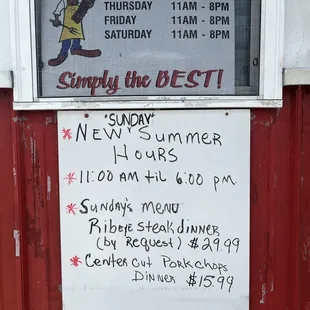 THURSDAY 11AM - 8PM
FRIDAY 11AM - 8PM
SATURDAY 11AM - 8PM
Simply the BEST!
*SUNDAY*
* NEW Summer
Hours
* 11:00 AM til 6:00 pm
* Sunday's MENU
Ribeye steak dinner
(by Request) $29.99
* Center cut Pork chops
Dinner $15.99